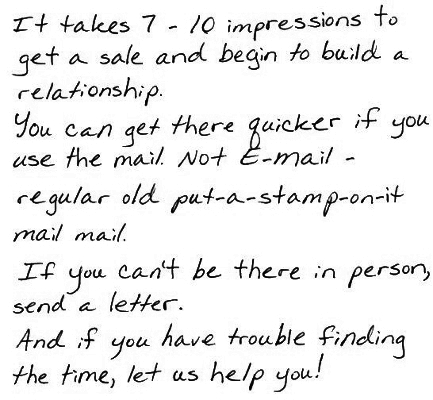 It takes 7 - 10 impressions to
get a sale and begin to build a
relationship.
You can get there quicker if you
use the mail. Not E-mail -
regular old put-a-stamp-on-it
mail mail.
If you can't be there in person,
send a letter.
And if you have trouble finding
the time, let us help you!